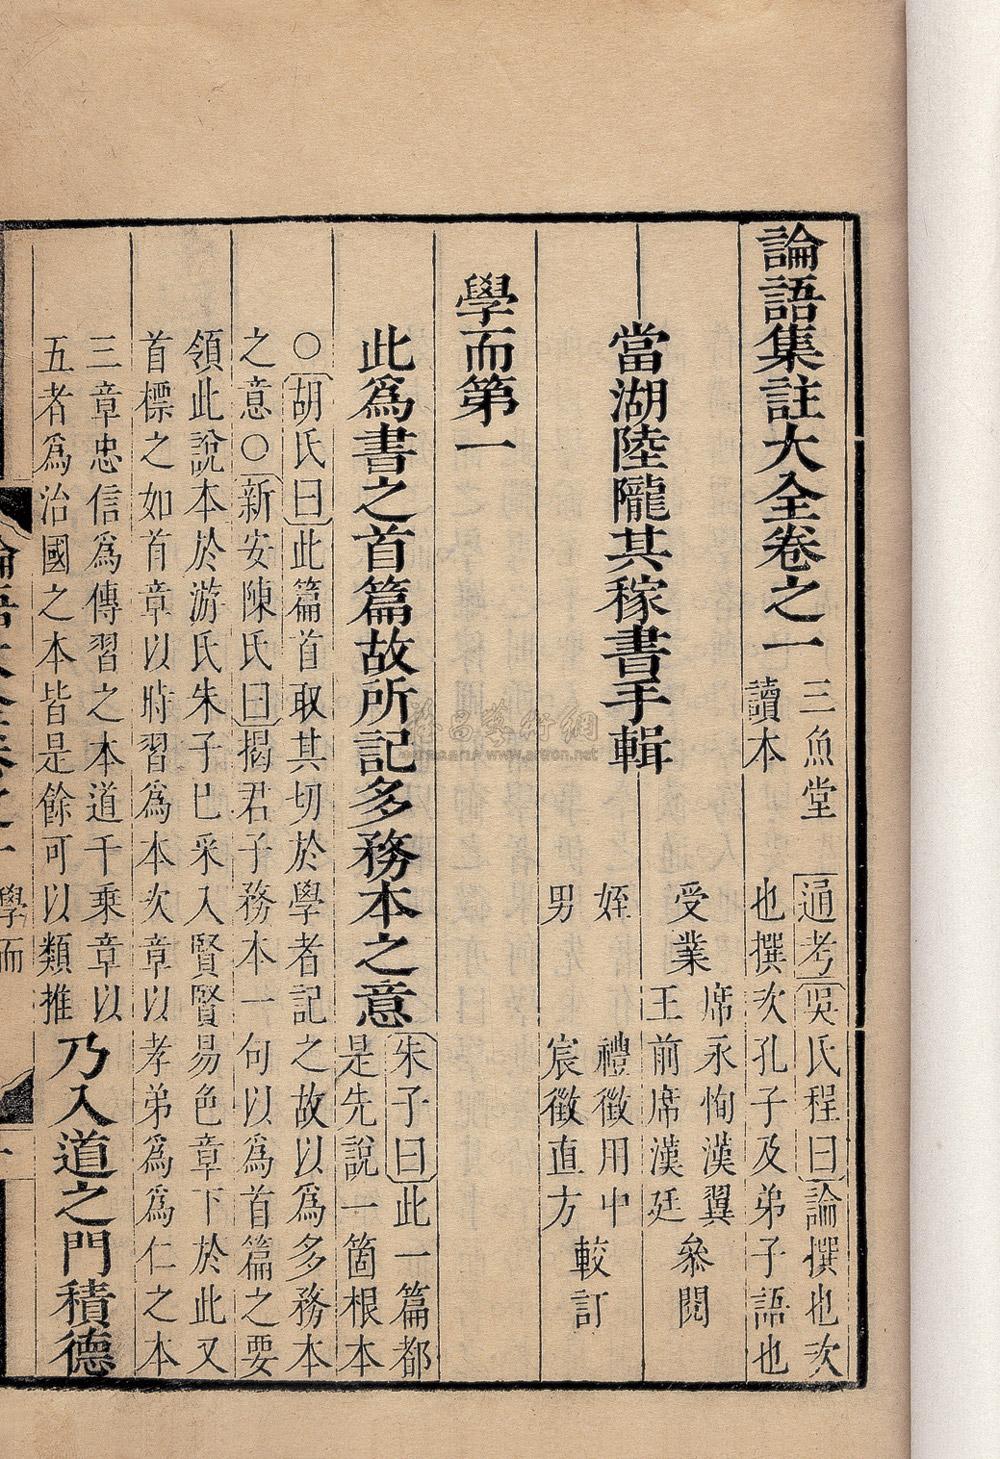 論語集註大全卷之一
三魚堂
讀本
通考吳氏程曰論撰也次
也撰次孔子及弟子語也
當湖陸隴其稼書手輯
受業
席永恂漢翼
王前席漢廷
參閱
姪禮徵用中
男宸徵直方
較訂
學而第一
此爲書之首篇故所記多務本之意
朱子曰此一篇都
是先說一箇根本
○胡氏曰此篇首取其切於學者記之故以爲多務本
之意○新安陳氏曰揭君子務本一句以爲首篇之要
領此說本於游氏朱子已采入賢賢易色章下於此又
首標之如首章以時習爲本次章以孝弟爲爲仁之本
三章忠信爲傳習之本道千乘章以
五者爲治國之本皆是餘可以類推
乃入道之門積德
學而